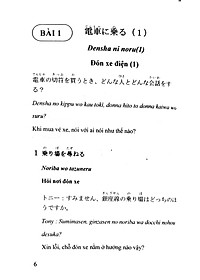 BÀI 1
電車に乗る（1）
Densha ni noru(1)
Đón xe điện (1)
電車の切符を買うとき、どんな人とどんな会話をす
る？
Densha no kippu wo kau toki, donna hito to donna katwa wo
suru?
Khi mua vé xe, nói với ai nói như thế nào?
1 乗り場を尋ねる
Noriba wo tazuneru
Hỏi nơi đón xe
トニー：すみません、銀座線の乗り場はどっちのほ
うですか。
Tony : Sumimasen, ginzasen no noriba wa docchi nohou
desuka?
Xin lỗi, chỗ đón xe nằm ở hướng nào vậy?
6